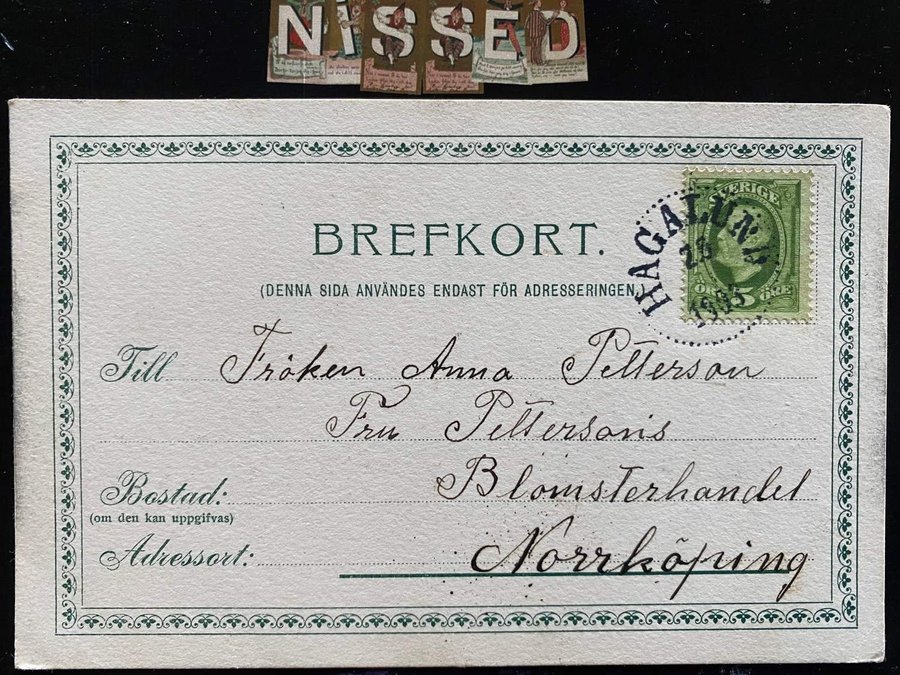 NISSED
BREFKORT.
(DENNA SIDA ANVÄNDES ENDAST FÖR ADRESSERINGEN.)
SVERIGE
5 ÖRE
HAGALUND
Till Fröken Anna Petterson
Fru Pettersons
Bostad: Blomsterhandel
(om den kan uppgifvas)
Adressort: Norrköping